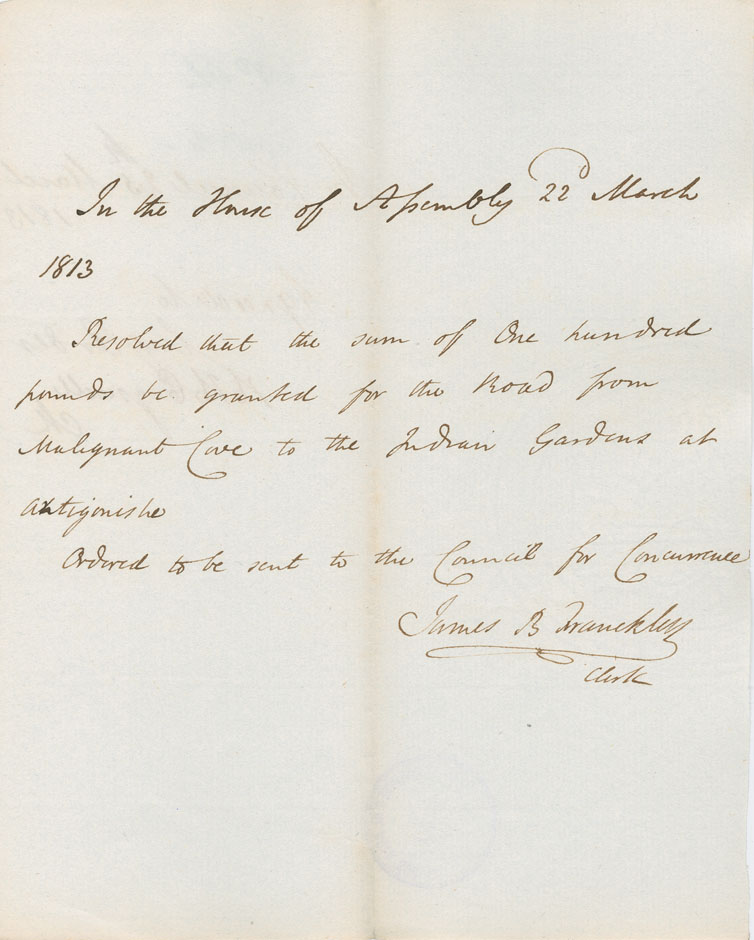 In the House of Assembly 22d March
1813
Resolved that the sum of One hundred
pounds be granted for the Road from
Malignant Cove to the Indian Gardens at
Antigonishe
Ordered to be sent to the Council for Concurrence
James B Franckley
Clerk